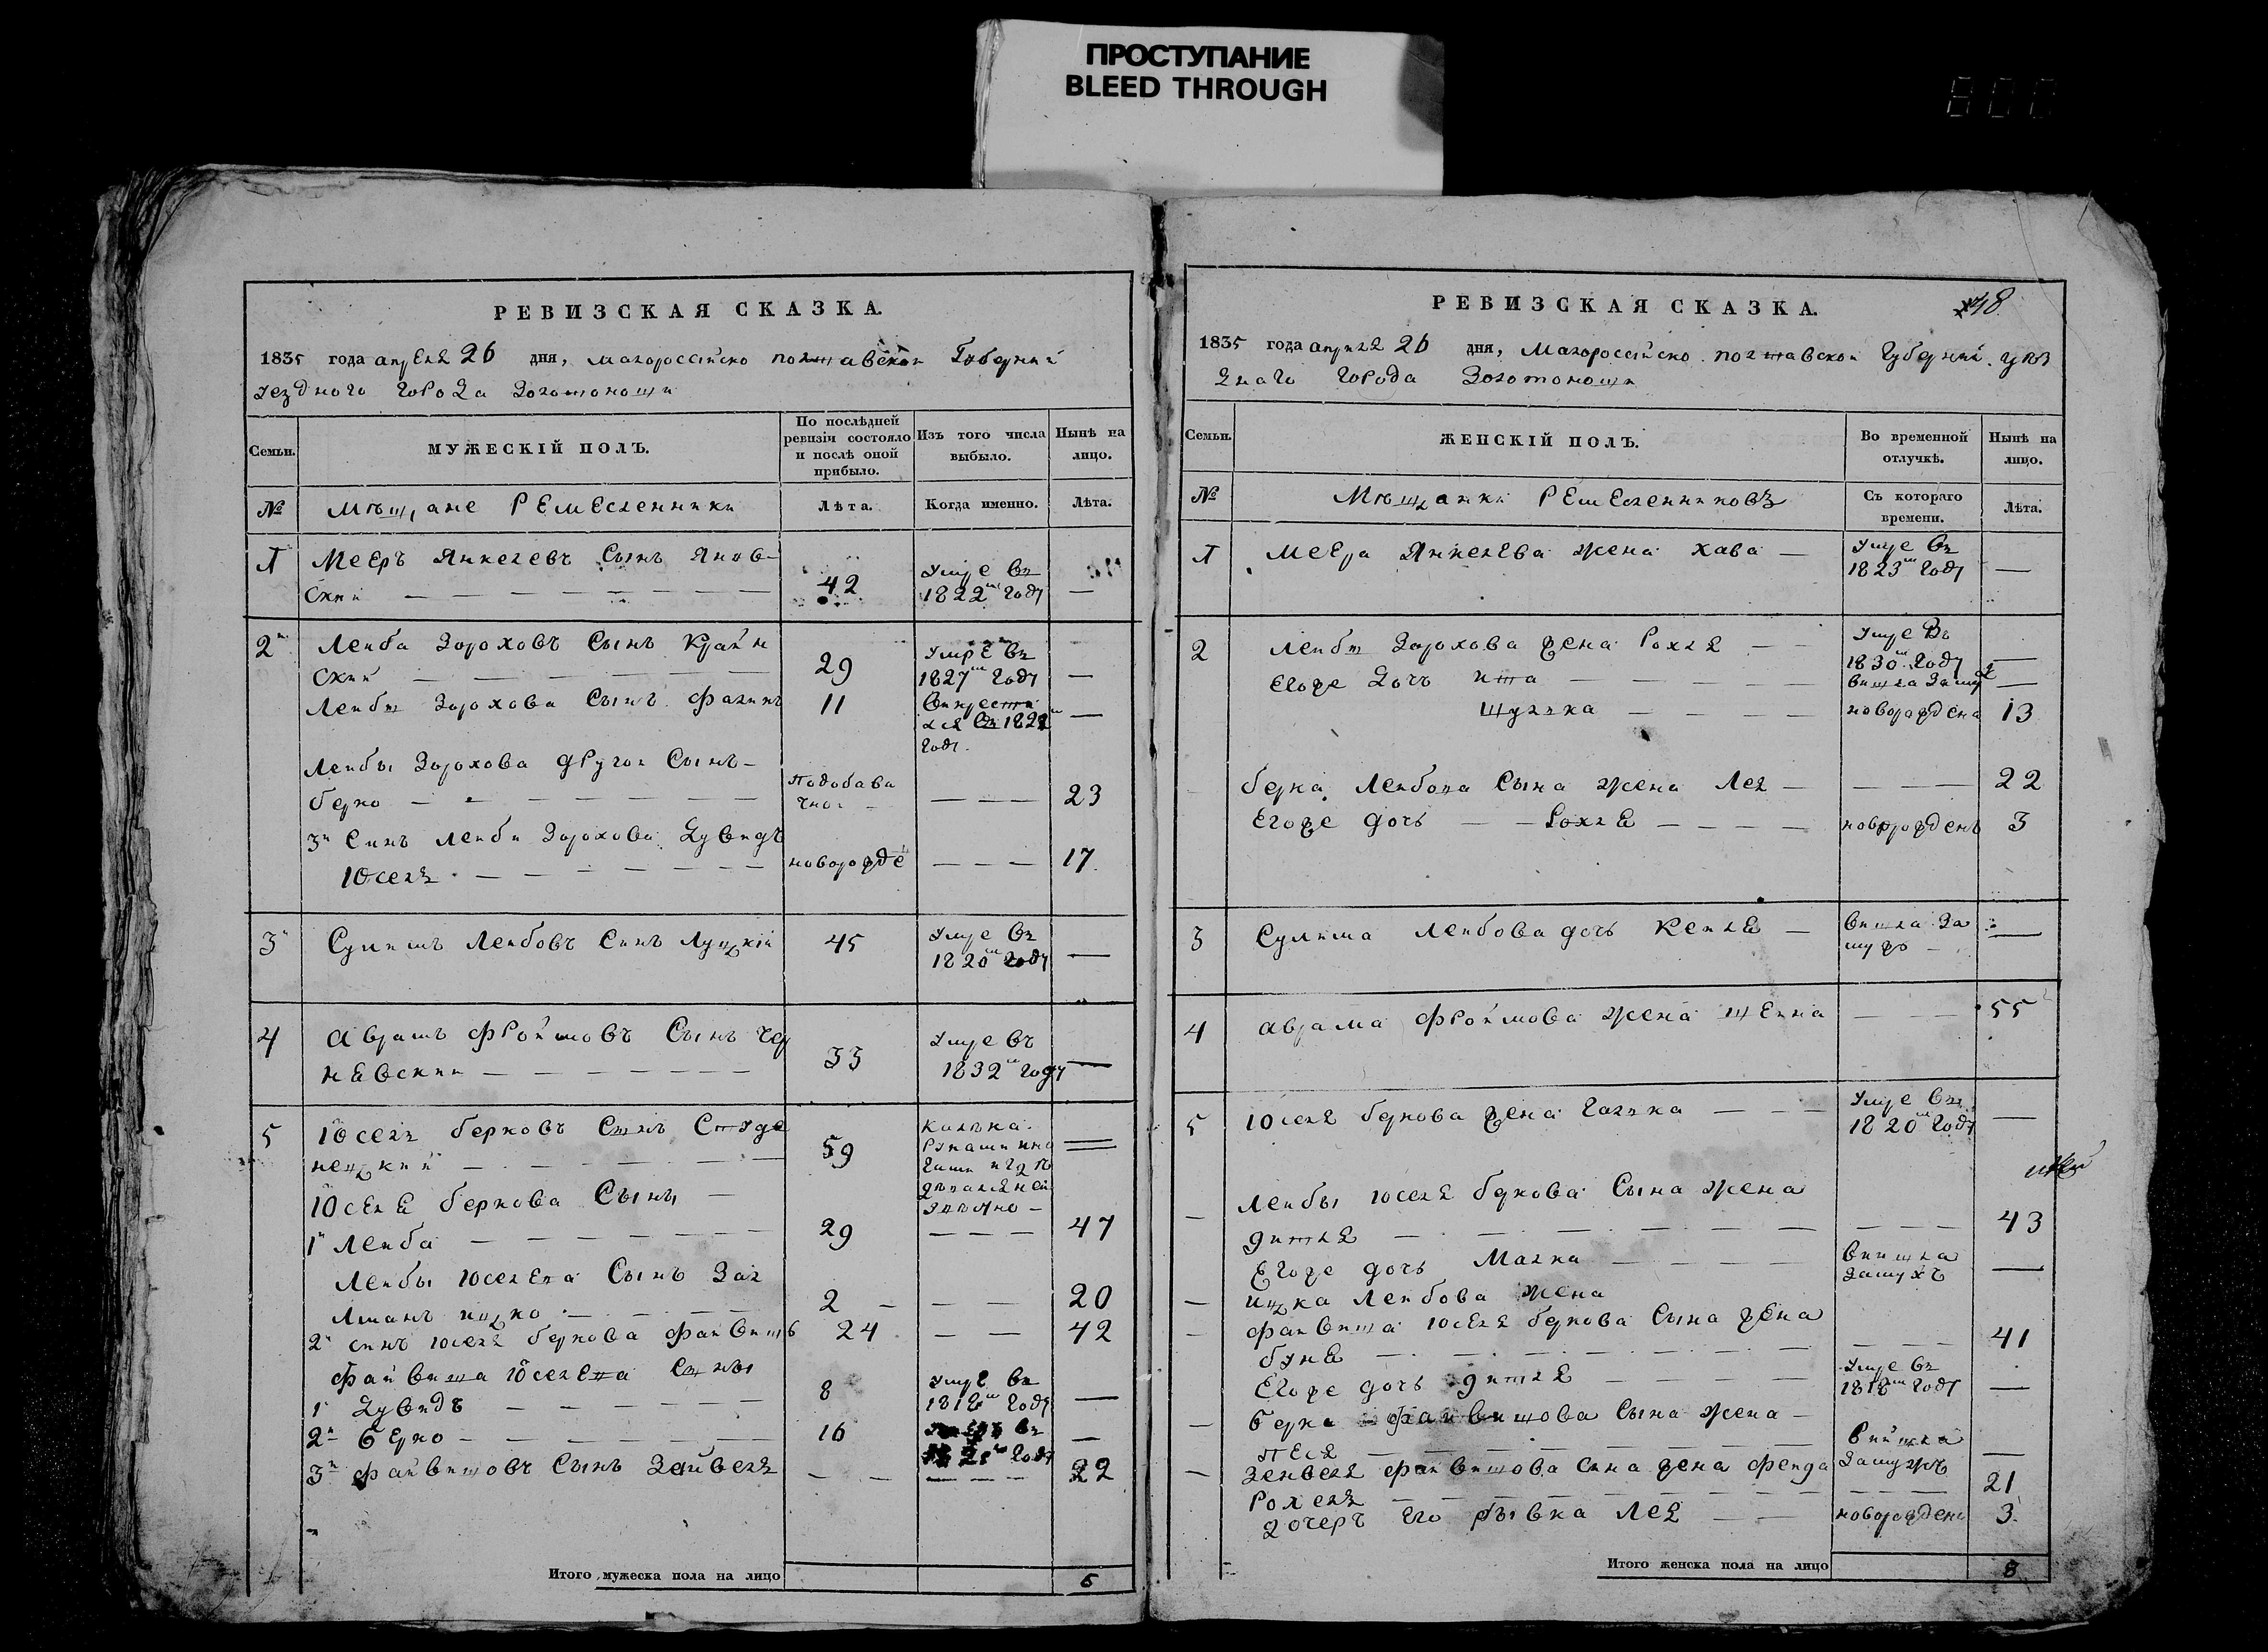 ПРОСТУПАНИЕ
BLEED THROUGH
РЕВИЗСКАЯ СКАЗКА.
1835 года апреля 26 дня, Малороссийско полтавской Губернии
уездного города Золотоноши
Семьи.
МУЖЕСКІЙ ПОЛЪ.
По послѣдней ревизіи состояло и послѣ оной прибыло.
Изъ того числа выбыло.
Нынѣ на лицо.
№
Мѣщане Ремесленники
Лѣта.
Когда именно.
Лѣта.
1 Мееръ Янкелевъ Сынъ Янов-
ский 42 Умре въ 1822м году —
2й Лейба Зорохо́въ Сынъ Крайн
ский 29 Умре въ 1827м году —
Лейбы Зорохова Сынъ 11 году
Лейбы Зорохова другой Сынъ
берко — 23
3й Синъ Лейби Зорохова
Юсель новорожде 17
3й Лейбовъ Синъ Луцкій 45 Умре въ 1820м году —
4 Аврамъ Фроимовъ Сынъ Чер
невский 33 Умре въ 1832м году —
5 Юсель берковъ Сынъ
59
Юселя беркова Сыны
1й Лейба 29 — 47
Лейбы Юселева Сынъ Зал
ману ицко 2 — 20
2й синъ Юселя беркова Файвишъ 24 — 42
Файвиша Юселева Сыны
1 8 Умре въ 1818м году —
2й Берко 16 году —
3й Файвишовъ Сынъ Зейвель — 22
Итого мужеска пола на лицо 5
РЕВИЗСКАЯ СКАЗКА.
48
1835 года апреля 26 дня, Малороссийско полтавской Губернии уез
днаго города Золотоноши
Семьи.
ЖЕНСКІЙ ПОЛЪ.
Во временной отлучкѣ.
Нынѣ на лицо.
№
Мѣщанки Ремесленниковъ
Съ котораго времени.
Лѣта.
1 Меера Янкелева жена хава — Умре въ 1823м году —
2 Лейбы Зорохова жена Рохля — Умре въ 1830м году —
Егоже дочь ита — вишла замуж —
шулька — новорождена 13
берка Лейбова Сына жена Лея — 22
Егоже дочь — Рохля — новорожденъ 3
3 Сулима Лейбова дочь Кейля — вишла за муж —
4 Аврама Фроимова жена — 55
5 Юселя беркова жена Галька — Умре въ 1820м году —
Лейбы Юселя беркова Сына жена
дитля — 43
Егоже дочь Малка — вийшла замужъ —
ицка Лейбова жена
Файвиша Юселя беркова Сына жена
буня — 41
Егоже дочь дитля — Умре въ 1818м году —
берка Файвишова Сына жена —
песя — вийшла замужъ —
Зейвеля Файвишова сина жена Фейда
Рохеля — 21
дочеръ его рывка Лея — новорождена 3
Итого женска пола на лицо 8